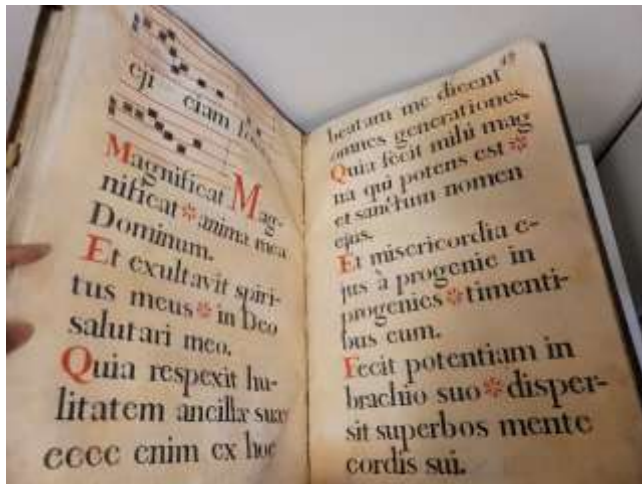 eji
Magnificat Mag-
nificat * anima mea
Dominum.
Et exultavit spiri-
tus meus * in Deo
salutari meo.
Quia respexit hu-
litatem ancillæ suæ
ecce enim ex hoc
beatam me dicent
omnes generationes.
Quia fecit mihi mag
na qui potens est *
et sanctum nomen
ejus.
Et misericordia e-
jus à progenie in
progenies * timenti-
bus eum.
Fecit potentiam in
brachio suo * disper-
sit superbos mente
cordis sui.